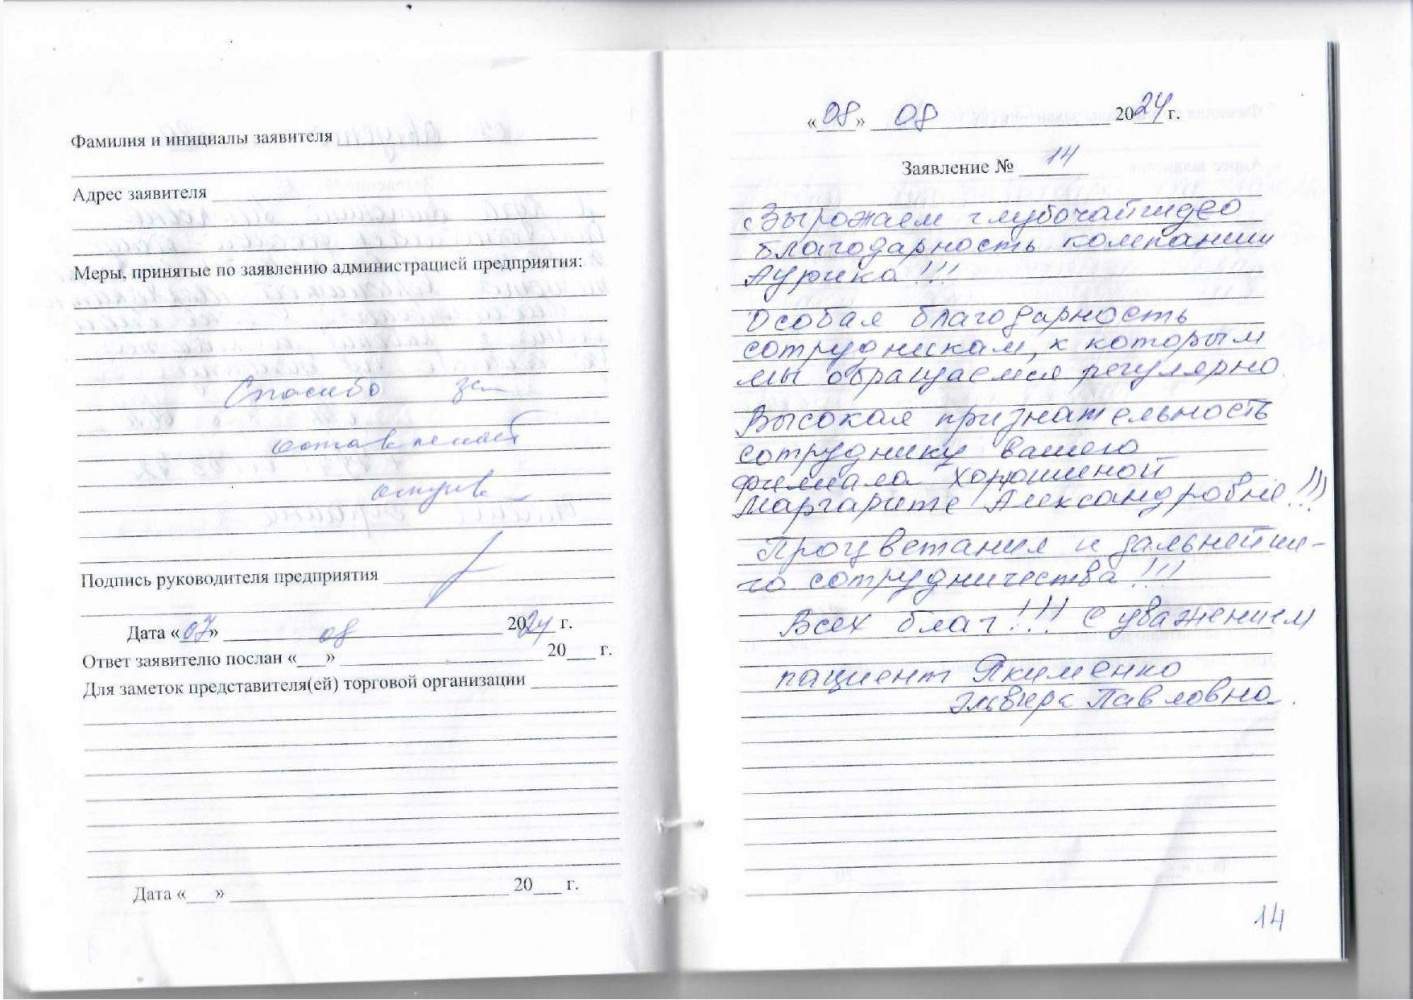 Фамилия и инициалы заявителя
Адрес заявителя
Меры, принятые по заявлению администрацией предприятия:
Спасибо за
оставленный
отзыв
Подпись руководителя предприятия
Дата «07» 08 2024 г.
Ответ заявителю послан «___» 20___ г.
Для заметок представителя(ей) торговой организации
Дата «___» 20___ г.
«08» 08 2024 г.
Заявление № 14
Вырожаем глубочайшую
благодарность компании
Аурика!!!
Особая благодарность
сотрудникам, к которым
мы обращаемся регулярно.
Высокая признательность
сотруднику вашего
филиала Хорошиной
Маргарите Александровне!!!
Процветания и дальнейше-
го сотрудничества!!!
Всех благ!!! С уважением
пациент Якименко
Эльвира Павловна.
14